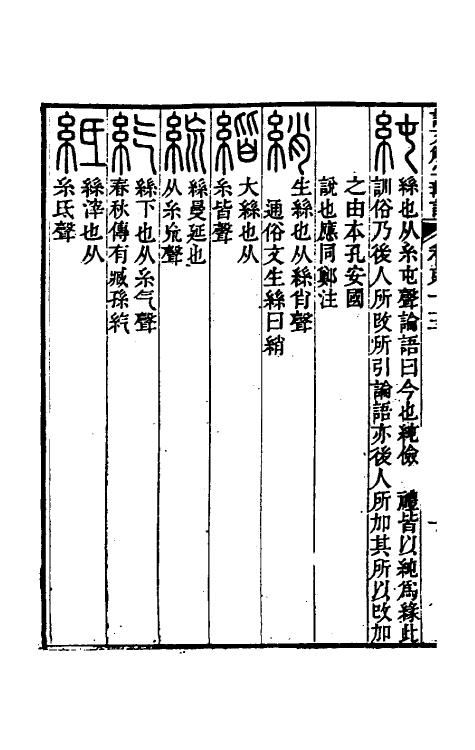 純
絲也从糸屯聲論語曰今也純儉　禮皆以純為緣此
訓俗乃後人所改所引論語亦後人所加其所以改加
之由本孔安國
說也應同鄭注
綃
生絲也从絲肖聲
通俗文生絲曰綃
大絲也从
糸皆聲
絲曼延也
从糸巟聲
紇
絲下也从糸气聲
春秋傳有臧孫紇
絲滓也从
糸氐聲